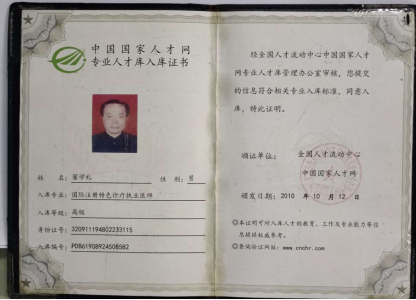 中国国家人才网
专业人才库入库证书
姓 名: 崔学礼 性 别: 男
入库专业: 国际注册特色诊疗执业医师
入库等级: 高级
身份证号: 320911194802233115
入库编号: PDB61908924508582
经全国人才流动中心中国国家人才
网专业人才库管理办公室审核,您提交
的信息符合相关专业入库标准,同意入
库,特此证明。
颁证单位: 全国人才流动中心
中国国家人才网
颁发日期: 2010 年 10 月 12 日
◎本证明可对入库人才的教育、工作及专业能力等信
息提供权威参考。
◎查询验证网站: www.cnchr.com